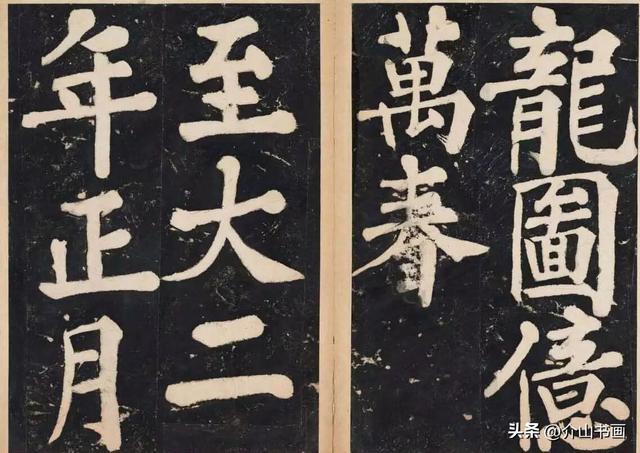 龍圖億
萬春
至大二
年正月
头条 @介山书画